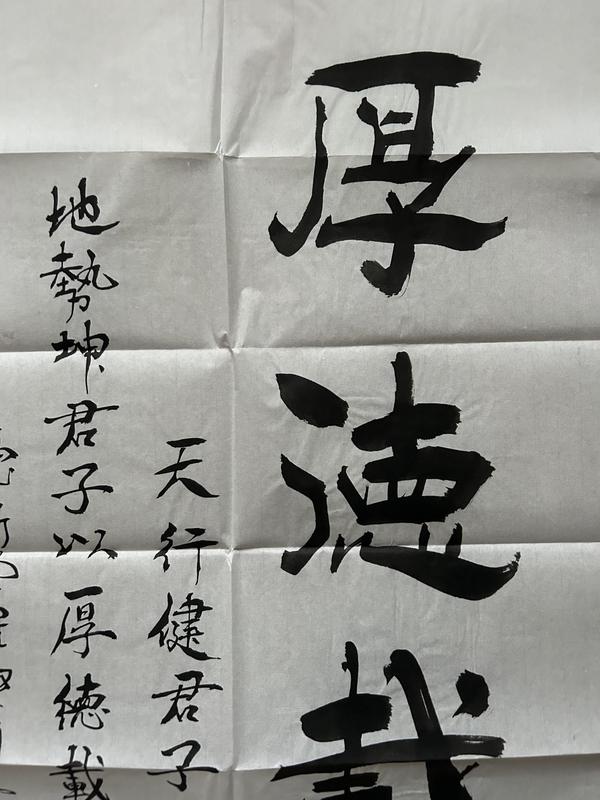 厚德載
天行健君子
地勢坤君子以厚德載